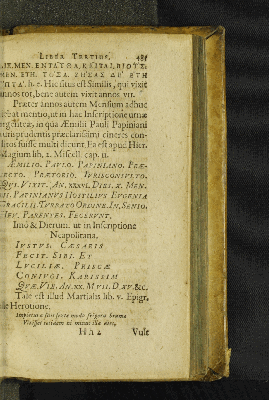 LIBER TERTIUS. 485
ΛΙΣ. ΜΕΝ. ΕΝΤΑΥΘΑ, ΚΕΙΤΑΙ, ΒΙΟΥΣ.
ΜΕΝ. ΕΤΗ. ΤΟΣΑ. ΖΗΣΑΣ ΔΕ' ΕΤΗ
h. e. Hic situs est Similis, qui vixit
annos tot, bene autem vixit annos VII.
Præter annos autem Mensium adhuc
mentio, ut in hac Inscriptione urnæ
in qua Æmilii Pauli Papiniani
prudentis præclarissimi cineres con-
suisse multi dicunt. Ea est apud Hier.
Magium lib. 2. Miscell. cap. 11.
ÆMILIO. PAVLO. PAPINIANO. PRÆ-
FECTO. PRÆTORIO. IVRISCONSVLTO.
QVI. VIXIT. AN. XXXVI. DIES. X. MEN.
PAPINIANVS HOSTILIVS EVGENIA
GRACILIS. TVRBATO ORDINE. IN. SENIO.
HEV. PARENTES. FECERVNT.
Imò & Dierum, ut in Inscriptione
Neapolitana.
IVSTVS. CÆSARIS
FECIT. SIBI. ET
LVCILIÆ. PRISCÆ
CONIVGI. KARISSIM
QVÆ. VIX. AN. XX. M VII. D. XV. &c.
Tale est illud Martialis lib. V. Epigr.
de Herotione.
Impletura fuit sextæ modo frigora brumæ
Vixisset totidem ni minus illa dies,
Hh 2 Vult